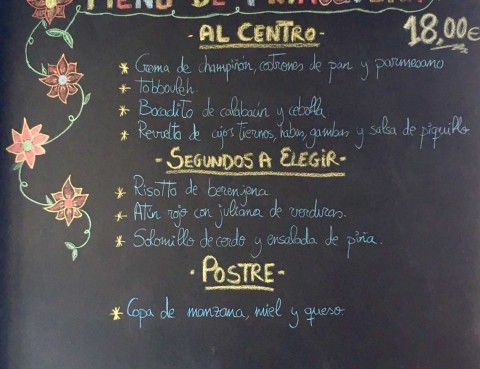 MENÚ DE PRIMAVERA
18,00€
- AL CENTRO -
* Crema de champiñón, costrones de pan y parmesano
* Tabbouleh
* Bocadito de calabacín y cebolla
* Revuelto de ajos tiernos, habas, gambas y salsa de piquillo
- SEGUNDOS A ELEGIR -
* Risotto de berenjena
* Atún rojo con juliana de verduras.
* Solomillo de cerdo y ensalada de piña.
- POSTRE -
* Copa de manzana, miel y queso